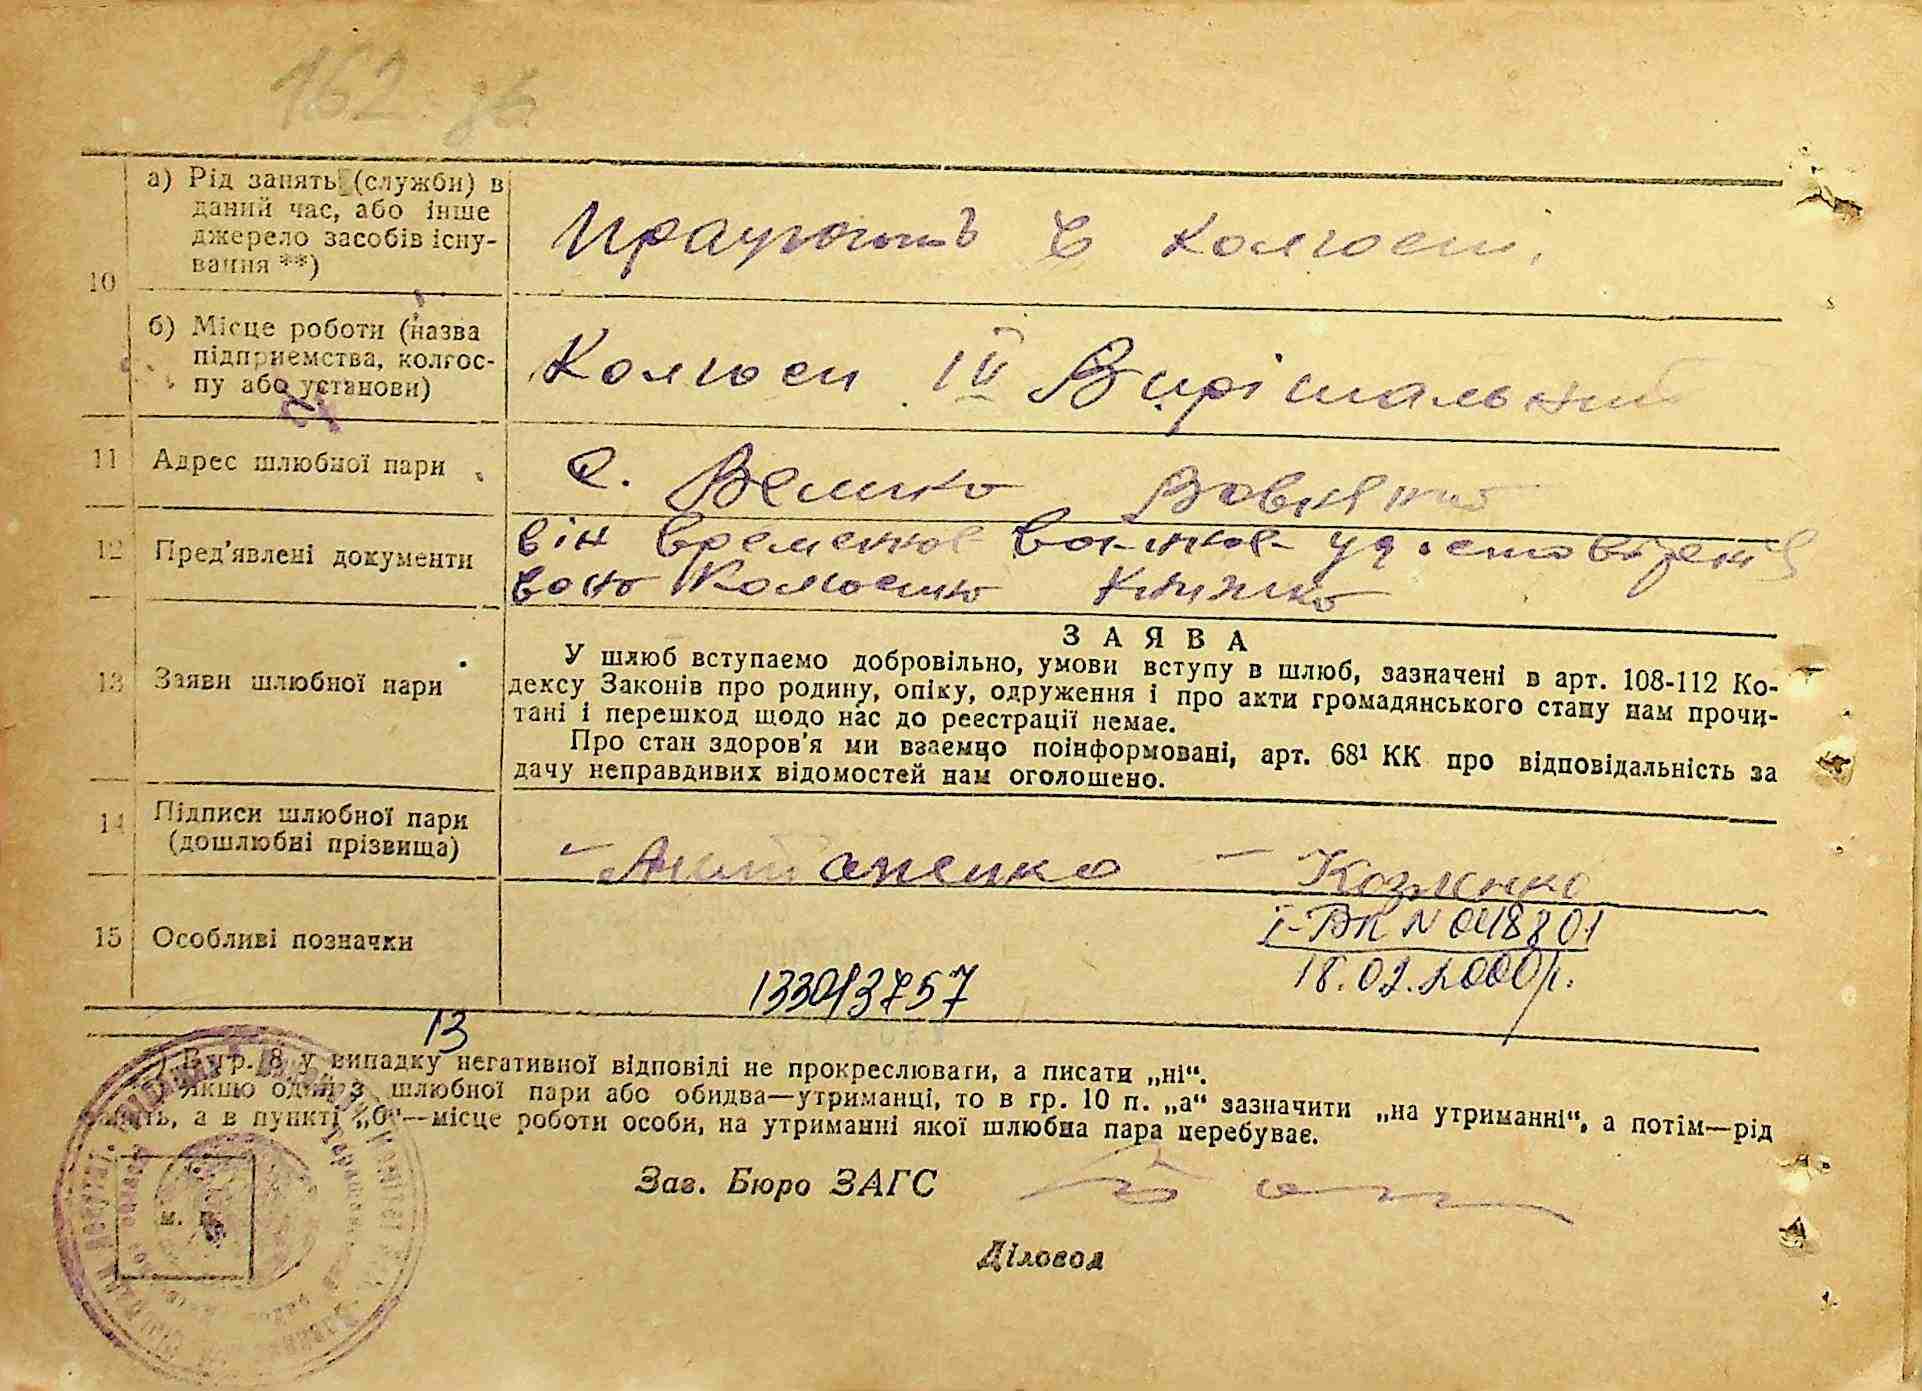 162 зв
10 а) Рід занять (служби) в
даний час, або інше
джерело засобів існу-
вання **)
Працюють в колгосп.
б) Місце роботи (назва
підприємства, колгос-
пу або установи)
Колгосп IV Вирішальний
11 Адрес шлюбної пари
с. Велико Вовнянка
12 Пред'явлені документи
він временное военное
вона Колгоспна Книжка
13 Заяви шлюбної пари
ЗАЯВА
У шлюб вступаємо добровільно, умови вступу в шлюб, зазначені в арт. 108-112 Ко-
дексу Законів про родину, опіку, одруження і про акти громадянського стану нам прочи-
тані і перешкод щодо нас до реєстрації немає.
Про стан здоров'я ми взаємно поінформовані, арт. 68¹ КК про відповідальність за
дачу неправдивих відомостей нам оголошено.
14 Підписи шлюбної пари
(дошлюбні прізвища)
Козленко
15 Особливі позначки
І-БК N 048801
18.02.2000р.
13
) В гр. 8 у випадку негативної відповіді не прокреслювати, а писати „ні“.
) Якщо один з шлюбної пари або обидва—утриманці, то в гр. 10 п. „а“ зазначити „на утриманні“, а потім—рід
занять, а в пункті „б“—місце роботи особи, на утриманні якої шлюбна пара перебуває.
м. п.
Зав. Бюро ЗАГС
Діловод